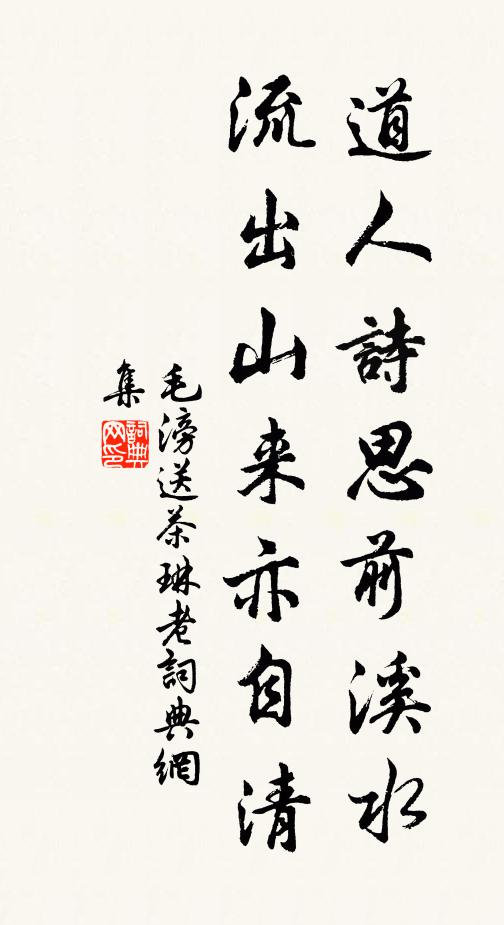 道人詩思前溪水
流出山来亦自清
毛滂送茶琳老詞典網
集
詞典
网印